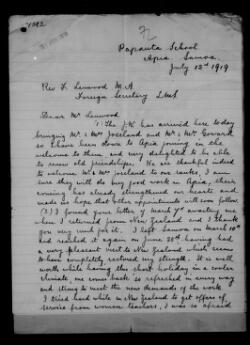 Papauta School
Apia, Samoa.
July 12th 1919
Rev F. Lenwood M.A
Foreign Secretary LMS
Dear Mr Lenwood
(1) The J.W. has arrived here today
bringing Mr & Mrs Joseland and Mr & Mrs Coward
so I have been down to Apia joining in the
welcome to them, and very delighted to be able
to renew old friendships. We are thankful indeed
to welcome Mr & Mrs Joseland to our ranks, I am
sure they will do very good work in Apia, their
coming has already strengthened our hearts and
made us hope that other appointments will soon follow.
(2) I found your letter of March 7th awaiting me
when I returned from New Zealand and I thank
you very much for it. I left Samoa on March 10th
and reached it again on June 28th having had
a very pleasant visit to New Zealand which seems
to have completely restored my strength. It is well
worth while having this short holiday in a cooler
climate, one comes back so refreshed in every way
and strong to meet the new demands of the work.
I tried hard while in New Zealand to get offers of
service from women teachers, I was so afraid